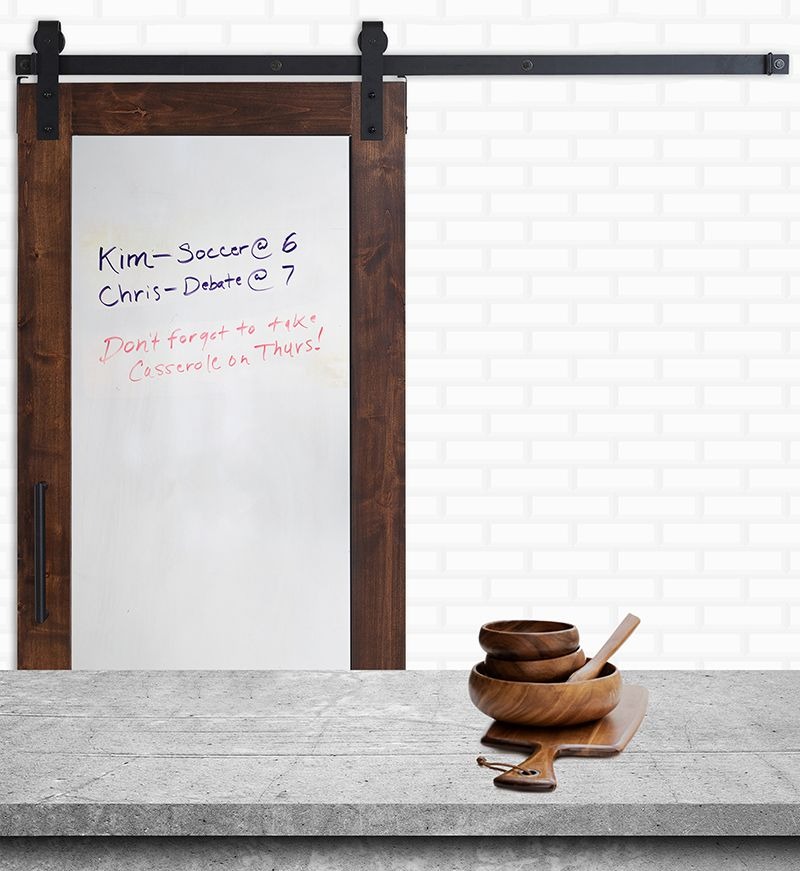 Kim - Soccer @ 6
Chris - Debate @ 7
Don't forget to take
Casserole on Thurs!